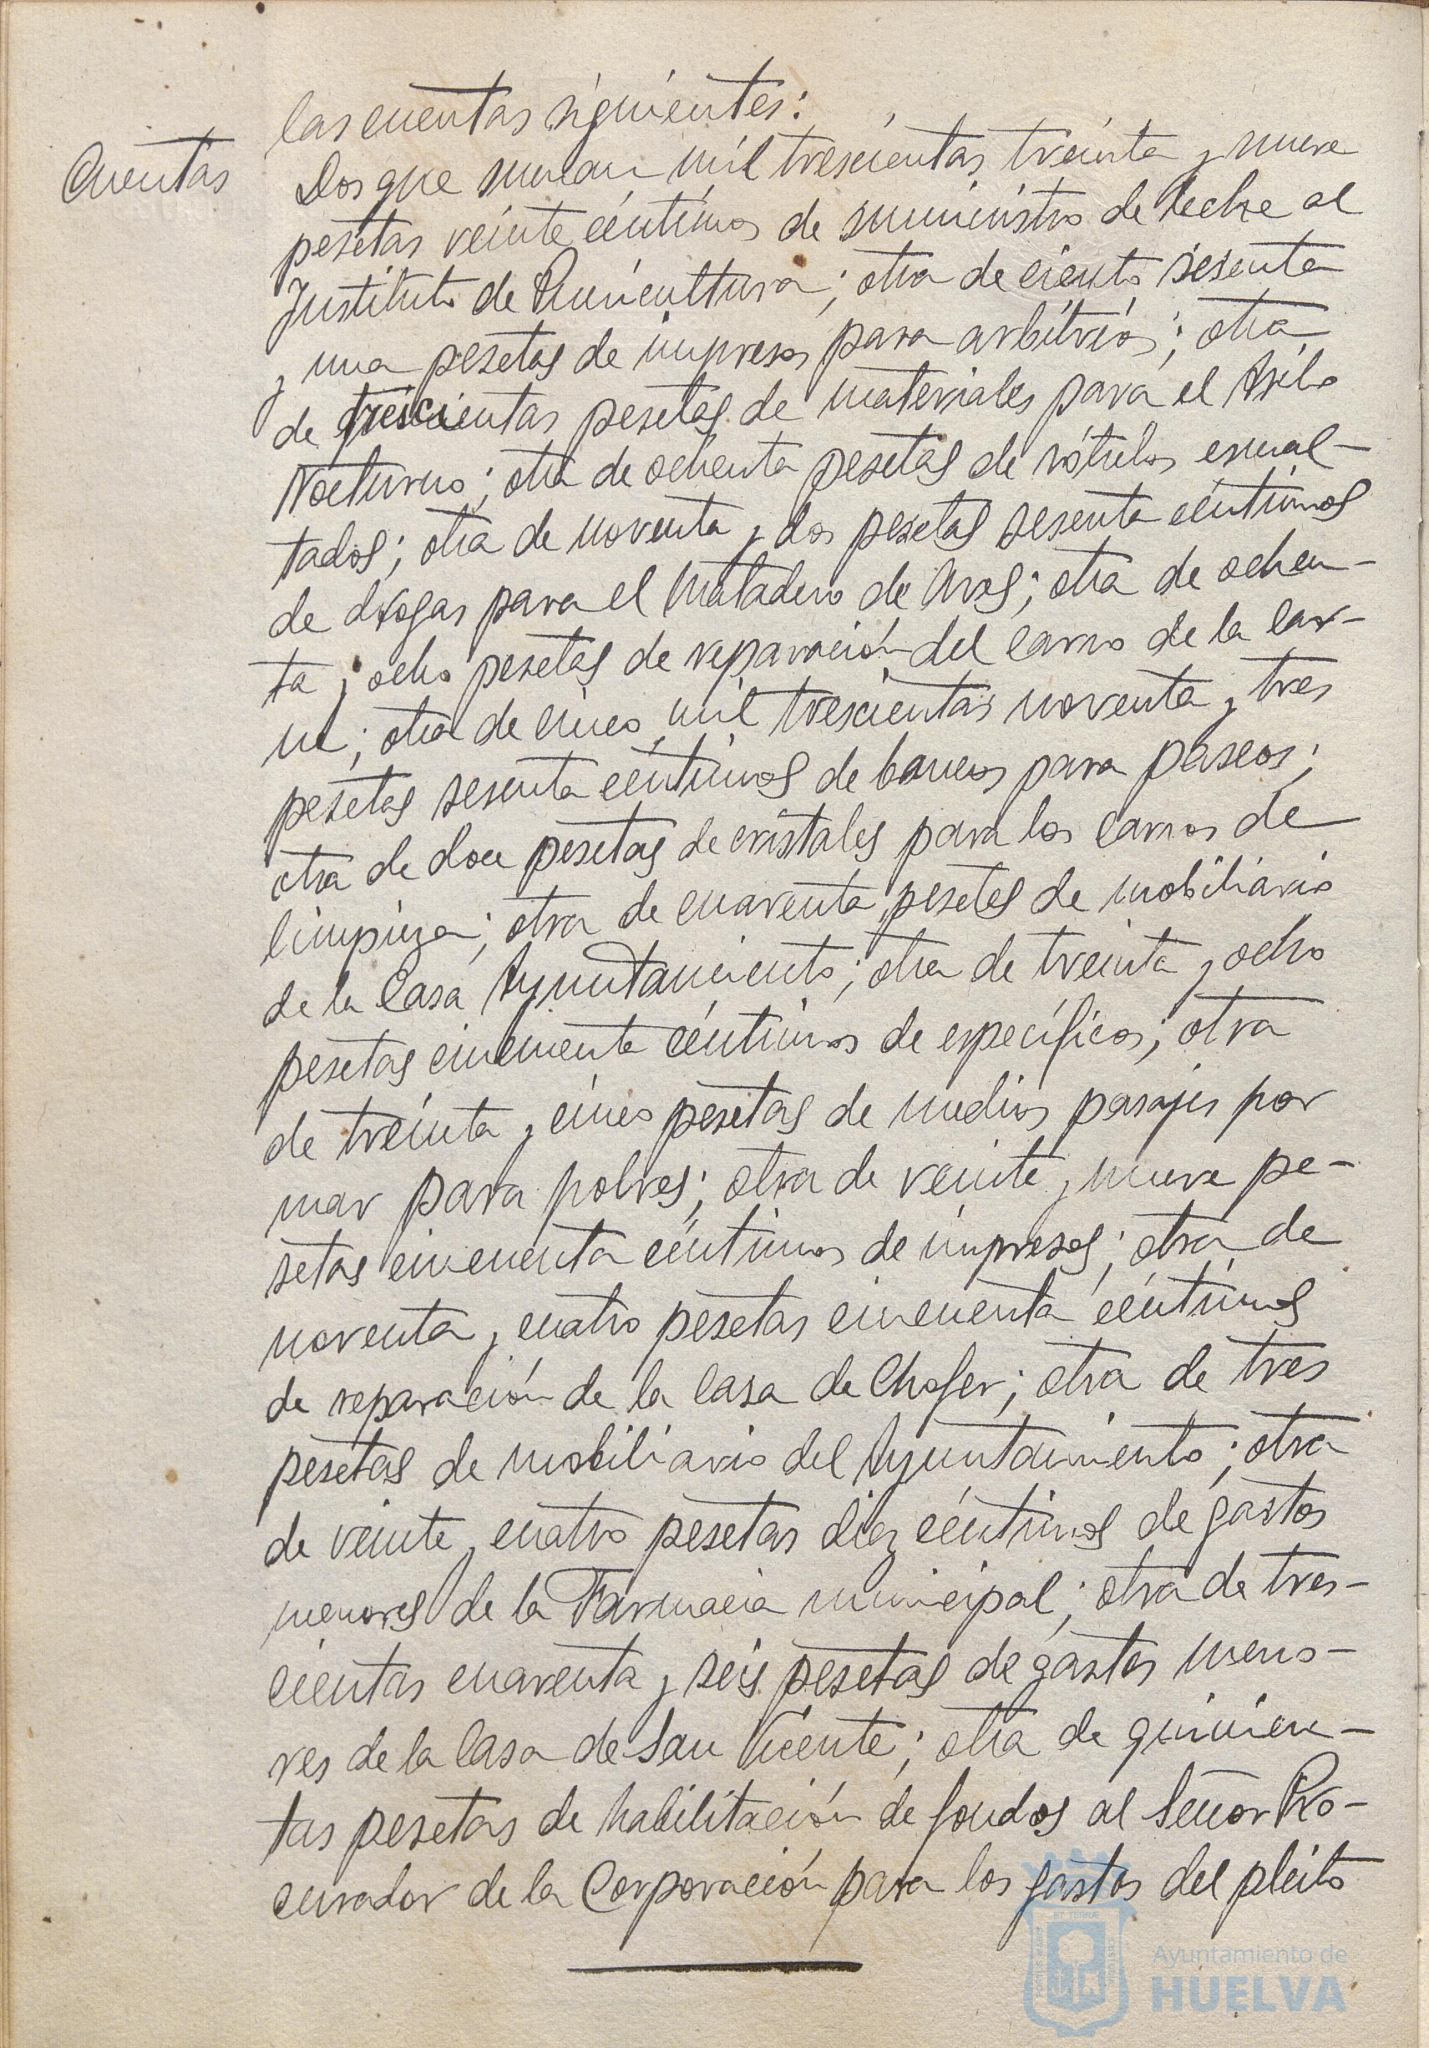 las cuentas siguientes:
Cuentas
Dos que suman mil trescientas treinta y nueve
pesetas veinte céntimos de suministro de leche al
Instituto de Puericultura; otra de ciento sesenta
y una pesetas de impresos para arbitrios; otra
de trescientas pesetas de materiales para el Asilo
Nocturno; otra de ochenta pesetas de rótulos esmal-
tados; otra de noventa y dos pesetas sesenta céntimos
de drogas para el Matadero de Aves; otra de ochen-
ta y ocho pesetas de reparación del carro de la car-
ne; otra de cinco mil trescientas noventa y tres
pesetas sesenta céntimos de bancos para paseos;
otra de doce pesetas de cristales para los carros de
limpieza; otra de cuarenta pesetas de mobiliario
de la Casa Ayuntamiento; otra de treinta y ocho
pesetas cincuenta céntimos de específicos; otra
de treinta y cinco pesetas de medios pasajes por
mar para pobres; otra de veinte y nueve pe-
setas cincuenta céntimos de impresos; otra de
noventa y cuatro pesetas cincuenta céntimos
de reparación de la casa de Chofer; otra de tres
pesetas de mobiliario del Ayuntamiento; otra
de veinte y cuatro pesetas diez céntimos de gastos
menores de la Farmacia municipal; otra de tres-
cientas cuarenta y seis pesetas de gastos meno-
res de la Casa de San Vicente; otra de quinien-
tas pesetas de habilitación de fondos al Señor Pro-
curador de la Corporación para los gastos del pleito
Ayuntamiento de
HUELVA